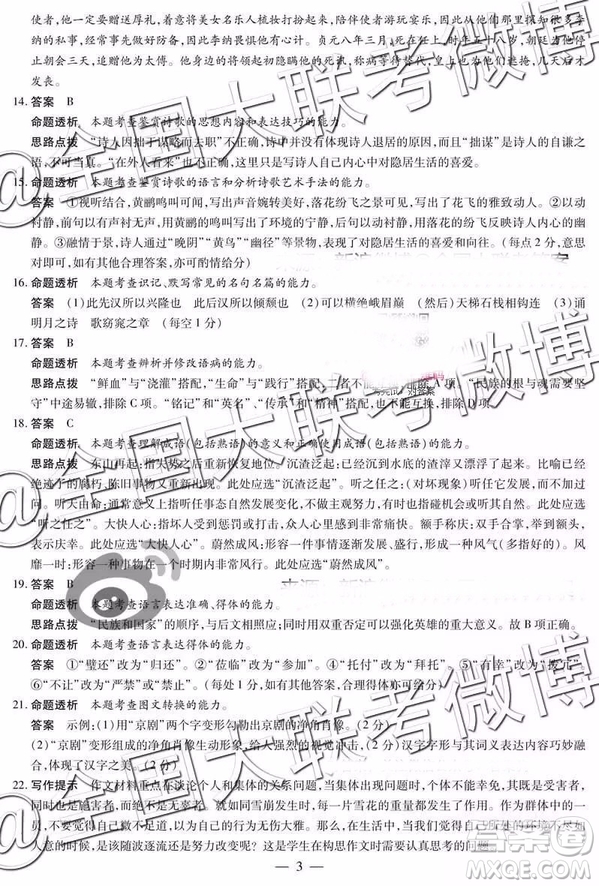 使者，他一定要赠送厚礼。着意将美女名乐人梳妆打扮起来，陪伴使者游玩宴乐。从他们那里探知很多李
纳的事，经常事先做好防备，因此李纳畏惧他有心计。贞元八年三月，死在任上，时年五十八岁，朝廷停
止朝会三天，追赠他为太傅。他身边的人开始时隐瞒他的死，称病等待替代，也上表假称
发丧。
14. 答案　B
命题透析　本题考查鉴赏诗歌的思想内容和表达技巧的能力。
思路点拨　“诗人因拙于谋略而去职”不正确，诗中并没有体现诗人退居的原因，而且“拙谋”是诗人的自谦之
语，不可当真。“在外人看来”也不对，体现的是诗人自己内心中对隐居生活的喜爱。
15. 命题透析　本题考查鉴赏诗歌的语言和分析诗歌艺术手法的能力。
答案　①视听结合，黄鹂鸣叫可闻，写出声音婉转美好，落花纷飞之景可见，写出了花飞的雅致动人。②以
动衬静，前句以有声衬无声，用黄鹂的鸣叫写出了环境的宁静，后句以动衬静，用落花的纷飞反映诗人内心的安静。
③融情于景，诗人通过“晚阴”“黄鸟”“幽径”等景物，表现了对幽居生活的喜爱。（每点2分，意思
对即可，如有其他合理答案，亦可酌情给分）
16. 命题透析　本题考查识记、默写常见的名句名篇的能力。
答案　(1)此先汉所以兴隆也　此后汉所以倾颓也　(2)可以横绝峨眉巅　(然后)天梯石栈相钩连　(3)诵
明月之诗　歌窈窕之章　（每空1分）
17. 答案　B
命题透析　本题考查辨析并修改语病的能力。
思路点拨　“鲜血”与“浇灌”搭配，“生命”与“践行”搭配，二者不能 排除A项。“民族的根不项要坚
守”中途易辙，排除C项。“铭记”和“英名”、“传承”和“精神”搭配，也可排除D项。
18. 答案　C
命题透析　本题考查理解成语（包括熟语）的意义和正确使用成语（包括熟语）的能力。
思路点拨　东山再起：指失势之后重新恢复地位。沉渣泛起：已经沉到水底的渣滓又漂浮了起来。比喻已经
绝迹了的腐朽、陈旧事物又重新出现。此处应选“沉渣泛起”。听之任之：（对坏现象）听任它存在、发展，而
不过问。听天由命：通常意义上是指听任事态自然发展变化，不做主观努力，有时也指碰机会或听其自然。此处应选
“听之任之”。大快人心：指坏人受到惩罚或打击，使大家非常痛快。额手称庆：双手合掌加额，
表示庆幸。此处应选“大快人心”。蔚然成风：形容一种事物逐渐发展盛行，形成一种风气（多指好的）。风
靡一时：形容一种事物在一个时期内非常盛行。此处应选“蔚然成风”。
19. 答案　B
命题透析　本题考查语言表达准确、得体的能力。
思路点拨　“民族和国家”的顺序，与后文照应，同时用双重否定可以强化英雄的重大意义。故B项正确。
20. 命题透析　本题考查语言表达得体的能力。
答案　①“璧还”改为“归还”。②“莅临”改为“参加”。④“托付”改为“拜托”。⑤“幸花”改为“无偿”。
⑥“不让”改为“尽力”。（每处1分，答出任意五处即可，如有其他答案，合理亦可给分）
21. 命题透析　本题考查图文转换的能力。
答案　示例：(1)用“京剧”两个字变形勾勒出京剧的净角肖像。（2分）
(2)“京剧”变形组成的净角肖像生动形象，给人强烈的视觉冲击（2分）；汉字字形与表达内容巧妙融
合，体现了汉字之美。（2分）
22. 写作提示　作文材料重点在谈论个人和集体的关系问题，当集体出现问题时，个体不能幸免，我们其实是受害者，
同时也是施害者，而不能说无罪。如同雪崩发生时，每一片雪花的重量都发挥了作用。作为群体中的一
员，不要以为个人的行为无伤大雅，很多大的祸患都是由每个人的小错误累积而成的。当发现自己所处的环境不尽如
人意的时候，是该随波逐流还是努力改变呢？这是学生在构思作文时需要认真思考的问题。
— 3 —
@全国大联考微博
答案圈